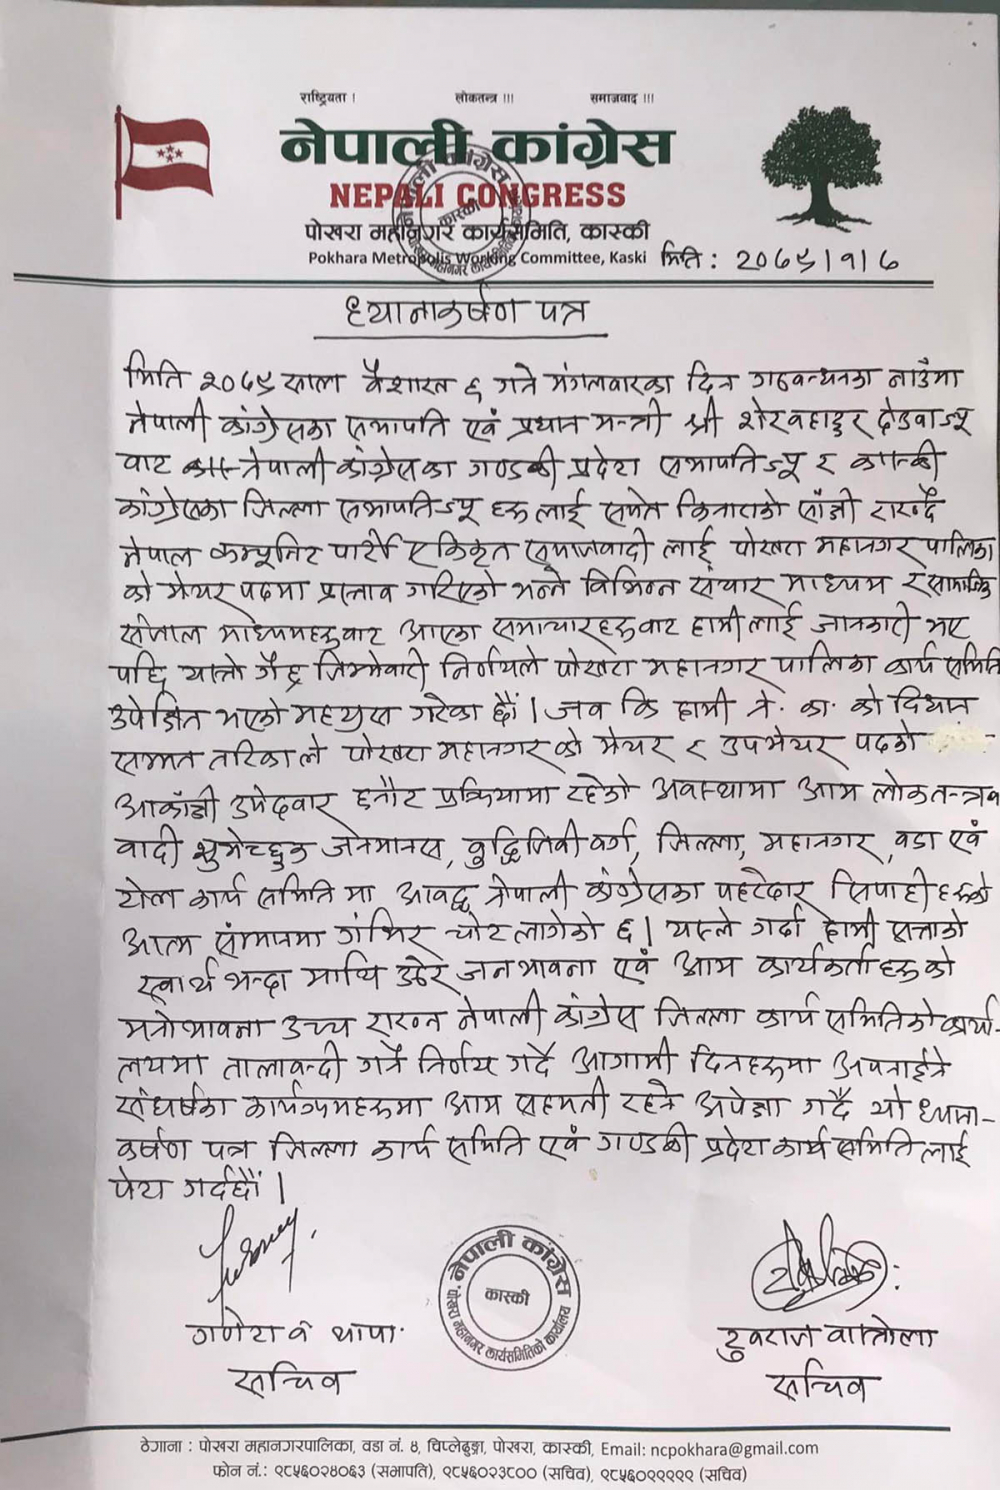 राष्ट्रियता ! लोकतन्त्र !!! समाजवाद !!!
नेपाली कांग्रेस
NEPALI CONGRESS
पोखरा महानगर कार्यसमिति, कास्की
Pokhara Metropolis Working Committee, Kaski मिति : २०७९।१।७
ध्यानाकर्षण पत्र
मिति २०७९ साल वैशाख ६ गते मंगलवारका दिन गठवन्धनका नाउँमा
नेपाली कांग्रेसका सभापति एवं प्रधान मन्त्री श्री शेरवहादुर देउवाज्यू
वाट नेपाली कांग्रेसका गण्डकी प्रदेश सभापतिज्यू र कास्की
कांग्रेसका जिल्ला सभापतिज्यू हरु लाई समेत किनाराको साँक्षी राख्दै
नेपाल कम्यूनिट पार्टी एकिकृत समाजवादी लाई पोखरा महानगर पालिका
को मेयर पदमा प्रस्ताव गरिएको भन्ने विभिन्न संचार माध्यम र सामाजिक
संजाल माध्यमहरुवाट आएका समाचारहरुवाट हामी लाई जानकारी भए
पछि यस्तो गैह्र जिम्मेवारी निर्णयले पोखरा महानगर पालिका कार्य समिति
उपेक्षित भएको महशुस गरेका छौं । जव कि हामी ने. का. को विधान
सम्मत तरिकाले पोखरा महानगर को मेयर र उपमेयर पदको
आकांक्षी उमेदवार छनौट प्रक्रियामा रहेको अवस्थामा आम लोकतन्त्र
वादी शुभेच्छुक जनमानस, वुद्धिजिवी वर्ग, जिल्ला, महानगर, वडा एवं
टोल कार्य समिति मा आवद्ध नेपाली कांग्रेसका पहरेदार सिपाही हरुको
आत्म संमानमा गंभिर चोट लागेको छ । यस्ले गर्दा हामी सत्ताको
स्वार्थ भन्दा माथि उठेर जनभावना एवं आम कार्यकर्ता हरु को
मनोभावना उच्च राख्न नेपाली कांग्रेस जिल्ला कार्य समितिको कार्या-
लयमा तालावन्दी गर्ने निर्णय गर्दै आगामी दिनहरुमा अपनाईने
संघर्षका कार्यक्रमहरुमा आम सहमती रहने अपेक्षा गर्दै यो ध्याना-
कर्षण पत्र जिल्ला कार्य समिति एवं गण्डकी प्रदेश कार्य समिति लाई
पेश गर्दछौं ।
गणेश वं थापा युवराज वास्तोला
सचिव सचिव
नेपाली कांग्रेस
कास्की
पोखरा महानगर कार्यसमितिको कार्यालय
ठेगाना : पोखरा महानगरपालिका, वडा नं. ४, चिप्लेढुङ्गा, पोखरा, कास्की, Email: ncpokhara@gmail.com
फोन नं.: ९८५६०२४०६३ (सभापति), ९८५६०२३८०० (सचिव), ९८५६०१११११ (सचिव)